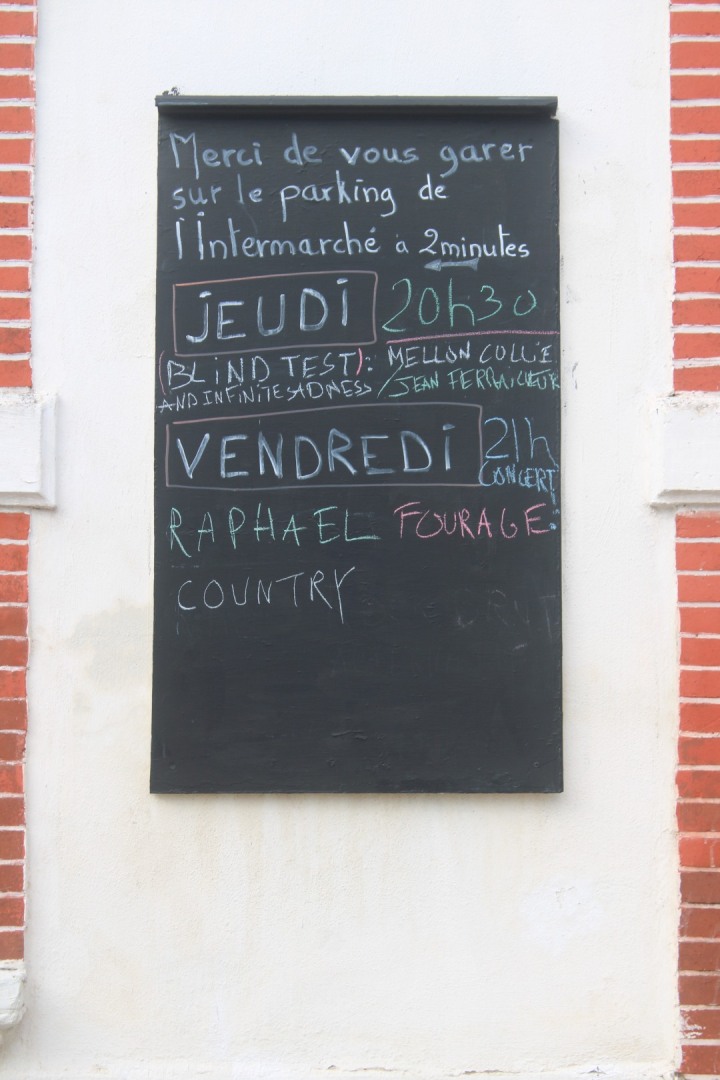 Merci de vous garer
sur le parking de
l'Intermarché à 2minutes
JEUDI 20h30
(BLIND TEST): MELLON COLLIE
AND INFINITE SADNESS /JEAN FERRAILLEUR
VENDREDI 21h
CONCERT
RAPHAEL FOURAGE:
COUNTRY